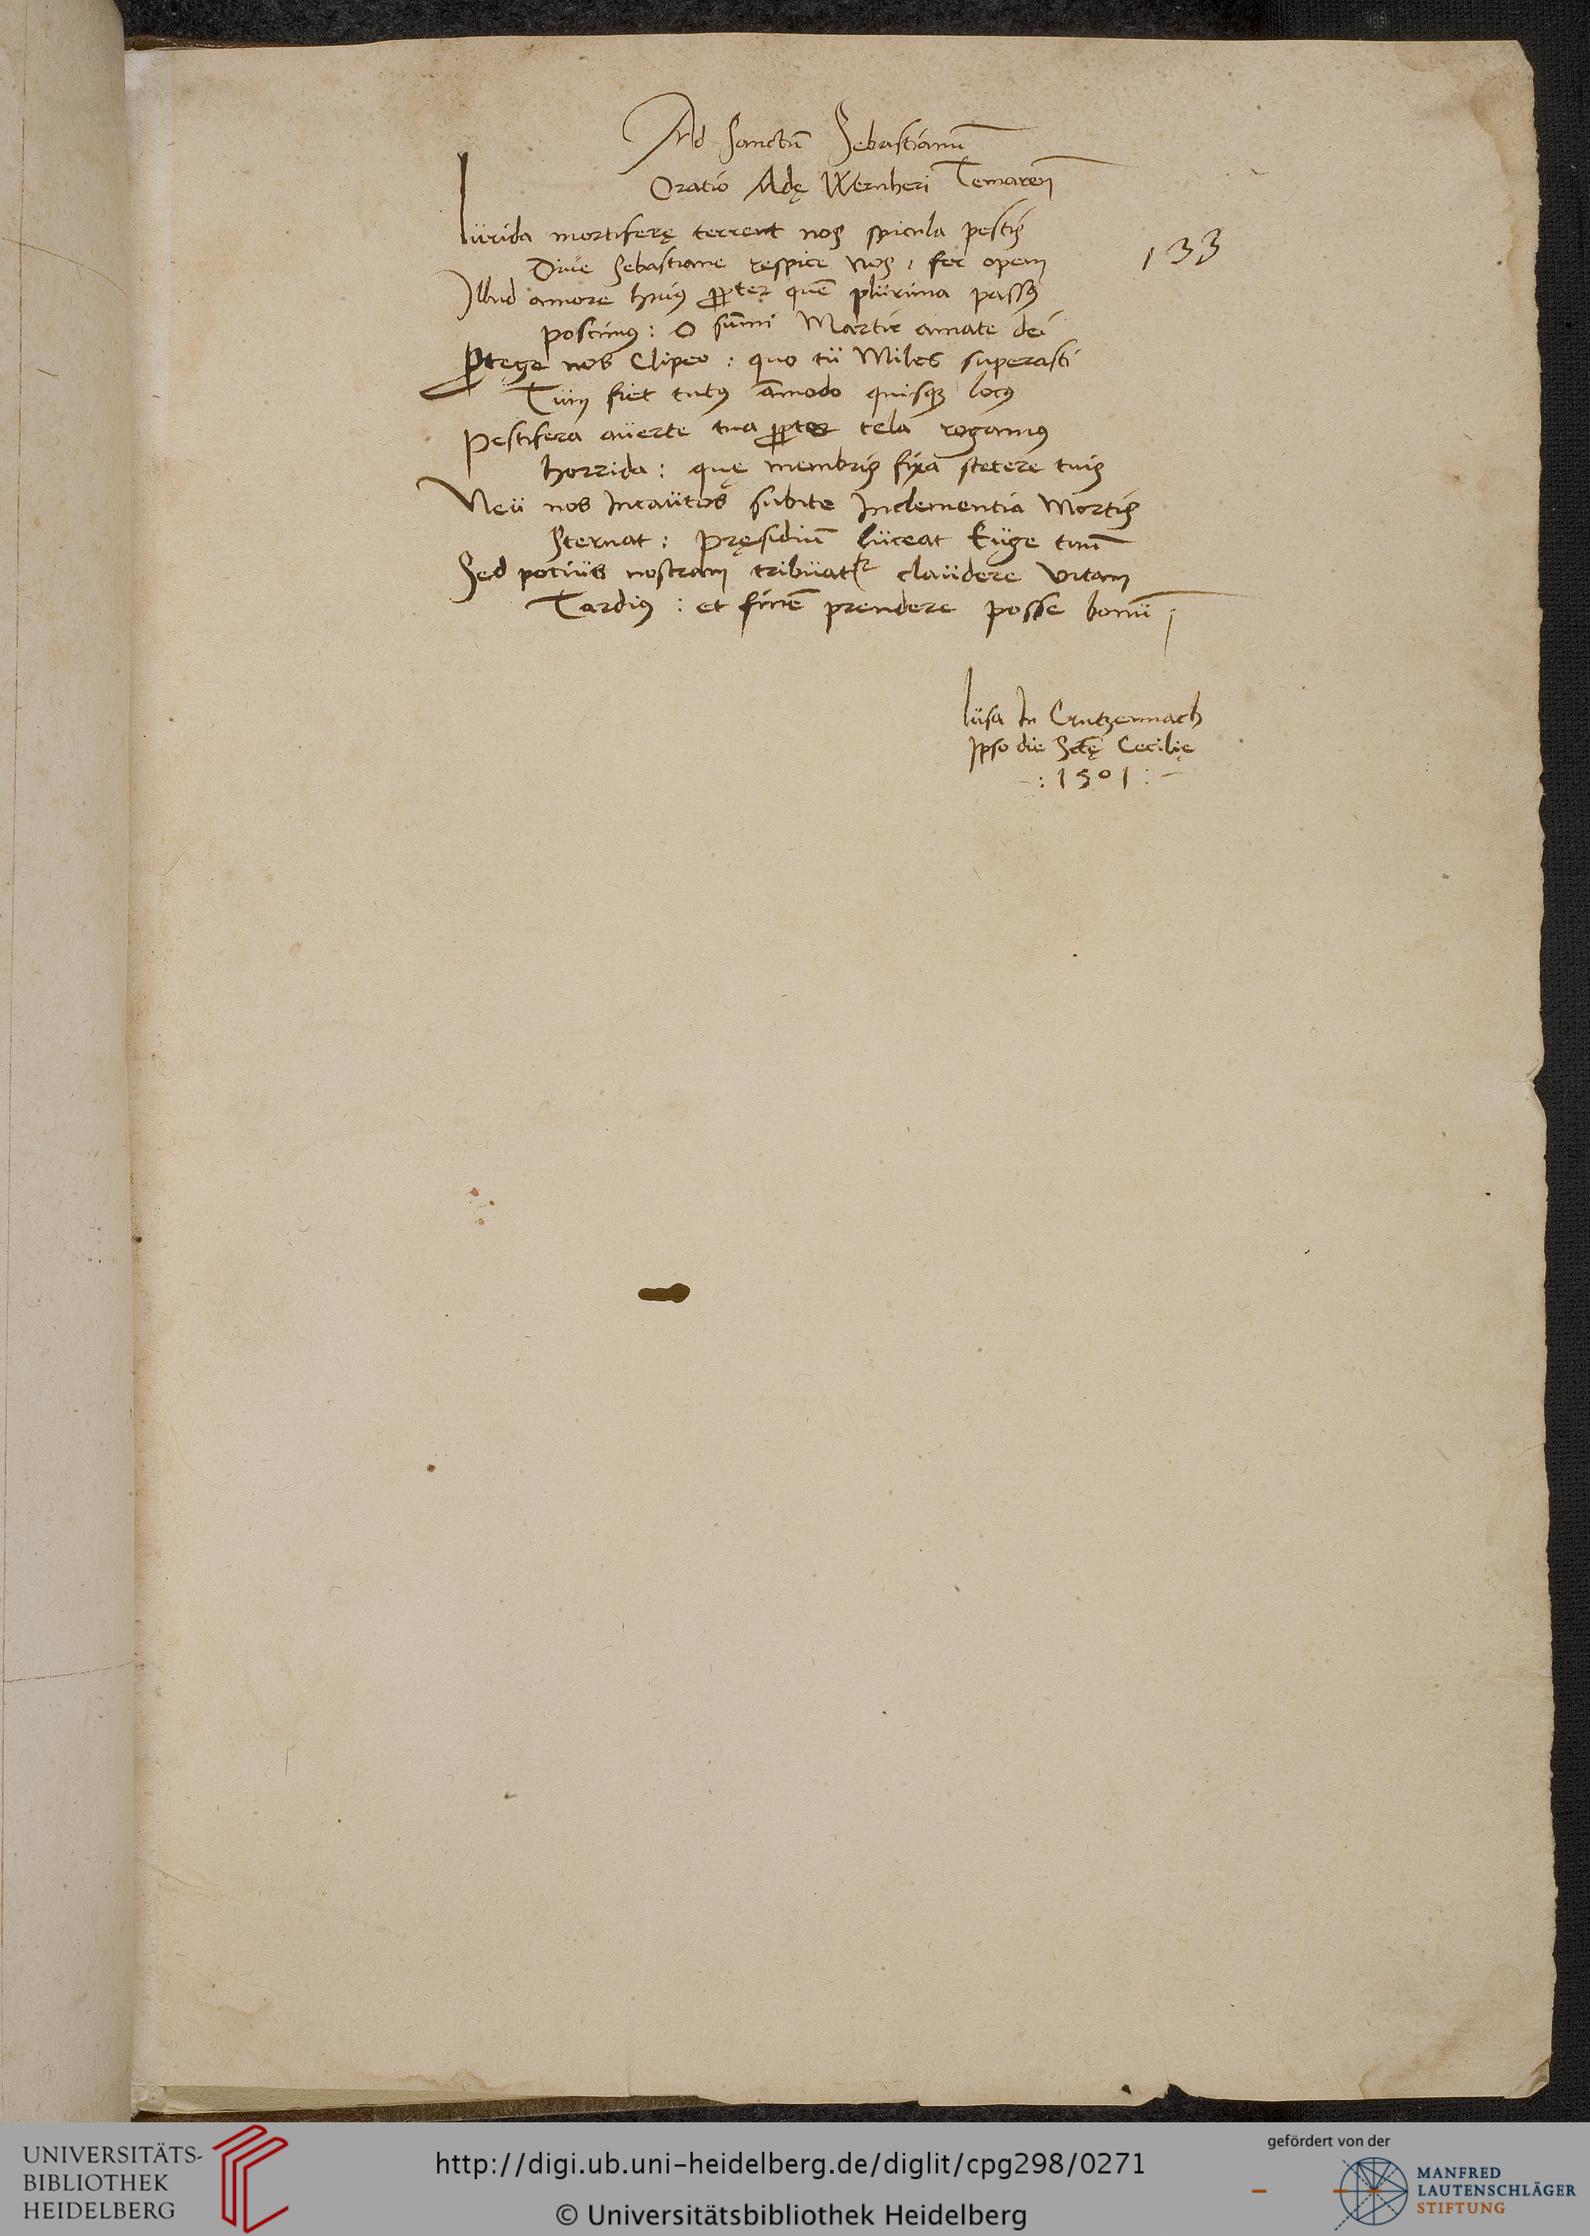 Ad Sanctū Sebastianū
Oratio Adę Wernheri Temareñ
lurida mortiferę terrent nos spicula pestis
Diue Sebastiane respice nos, fer opem
Illud amore huius propter quē plurima passus
poscimus : O sūmi Martir amate dei
Protege nos Clipeo : quo tu Miles superasti
Tum fiet tutus āmodo quisque locus
Pestifera auerte tua propter tela rogamus
horrida : quę membris fixa stetere tuis
Neu nos Incautos subite Inclementia Mortis
Sternat : Pręsidiū luceat Euge tuū
Sed potius nostram tribuatur claudere vitam
Tardius : et finē prendere posse bonū
133
lusa In Crutzennach
Ipso die Sctę Cecilię
: 1501 :
UNIVERSITÄTS-
BIBLIOTHEK
HEIDELBERG
http://digi.ub.uni-heidelberg.de/diglit/cpg298/0271
© Universitätsbibliothek Heidelberg
gefördert von der
MANFRED
LAUTENSCHLÄGER
STIFTUNG